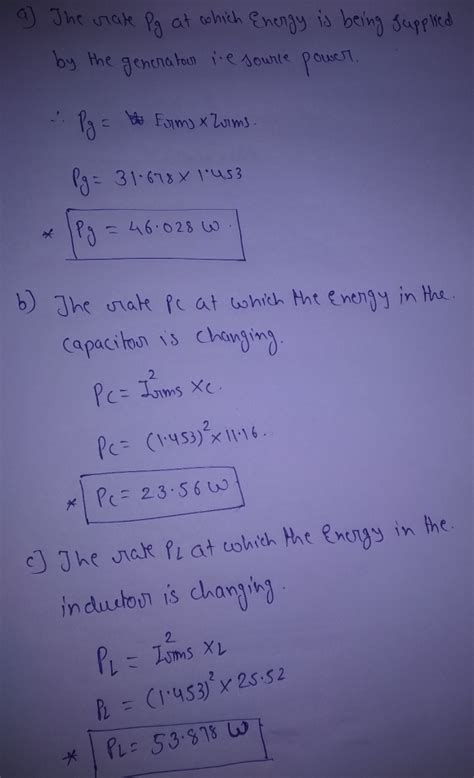 a) The rate Pg at which Energy is being supplied
by the generator i.e source power.
∴ Pg = Erms × Irms.
Pg = 31.678 × 1.453
* Pg = 46.028 W.
b) The rate Pc at which the energy in the.
capacitor is changing.
Pc = I²rms Xc.
Pc = (1.453)² × 11.16.
* Pc = 23.56 W
c] The rate PL at which the Energy in the.
inductor is changing.
PL = I²rms XL
PL = (1.453)² × 25.52
* PL = 53.878 W